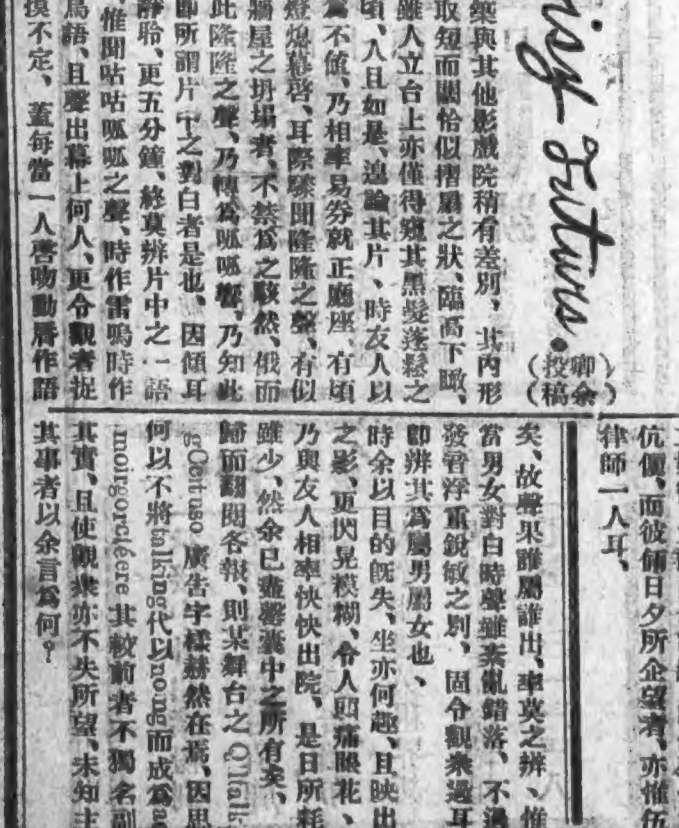 isy Futurs.
卿余
(投稿)
築與其他影戲院稍有差別、其內形
取短而闊恰似摺扇之狀、臨高下瞰、
雖人立台上亦僅得窺其黑髮蓬鬆之
頃、人且如是、遑論其片、時友人以
爲不値、乃相率易券就正廳座、有頃
燈熄幕啓、耳際驟聞隆隆之聲、有似
牆屋之坍塲者、不禁爲之駭然、俄而
此隆隆之聲、乃轉爲呱呱聲、乃知此
卽所謂片中之對白者是也、因傾耳
靜聆、更五分鐘、終莫辨片中之一語
惟聞咕咕呱呱之聲、時作雷鳴時作
鳥語、且聲出幕上何人、更令觀者捉
摸不定、蓋每當一人啓吻動脣作語
伉儷、而彼倆日夕所企望者、亦惟伍
律師一人耳、
矣、故聲果誰屬誰出、率莫之辨、惟
當男女對白時聲雖紊亂錯落、不過
發音浮重銳敏之別、固令觀衆過耳
卽辨其爲屬男屬女也、
時余以目的旣失、坐亦何趣、且映出
之影、更閃晃模糊、令人頭痛眼花、
乃與友人相率怏怏出院、是日所耗
雖少、然余已盡罄囊中之所有矣、
歸而翻閱各報、則某舞台之Q'lalk-
gCetuso 廣告字樣赫然在焉、因思
何以不將talking代以no-ng而成爲
moirgorcléere 其較前者不獨名副
其實、且使觀衆亦不失所望、未知主
其事者以余言爲何？